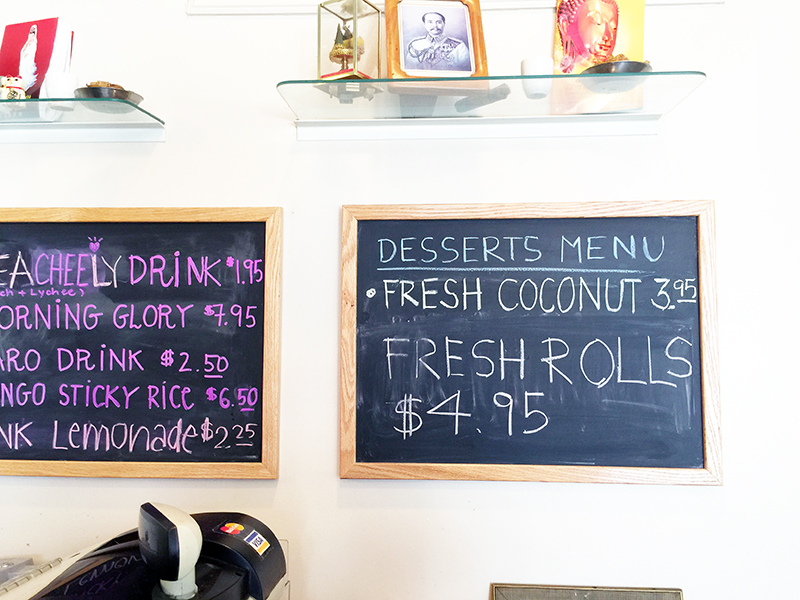 EACHEELY DRINK $1.95
ch + Lychee)
ORNING GLORY $7.95
ARO DRINK $2.50
NGO STICKY RICE $6.50
NK Lemonade $2.25
DESSERTS MENU
• FRESH COCONUT 3.95
FRESH ROLLS
$4.95
MasterCard
VISA